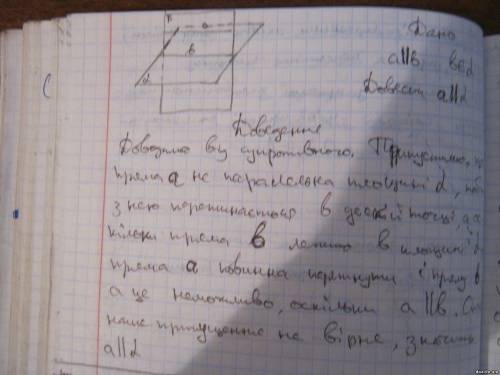 β
a
b
α
Дано
a||b, b∈α
Довести a||α
Доведення
Доводимо від супротивного. Припустимо, що
пряма a не паралельна площині α,
з нею перетинається в деякій точці, а
оскільки пряма b лежить в площині α
пряма a повинна перетнути і пряму b
а це неможливо, оскільки a||b.
наше припущення не вірне, значить
a||α